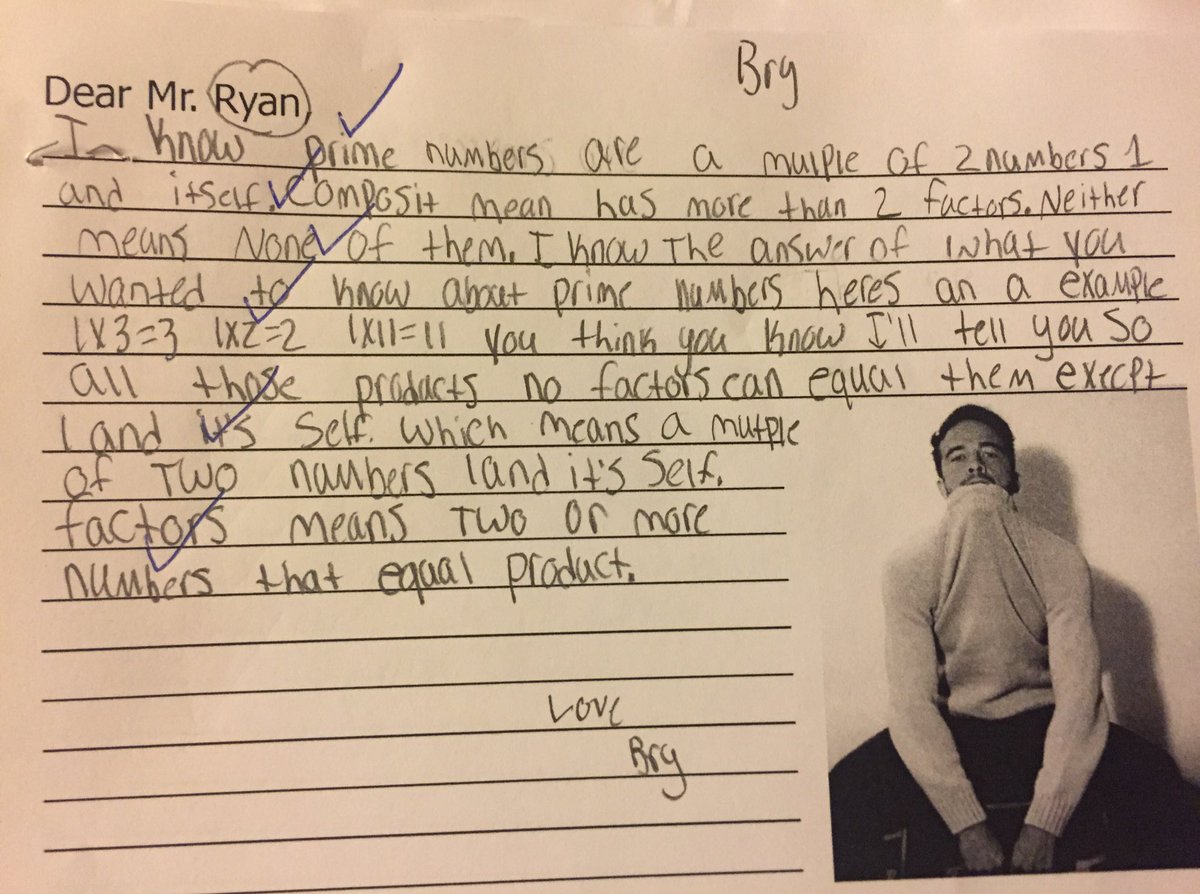 Bry
Dear Mr. Ryan
I know prime numbers are a mulple of 2 numbers 1
and itself. Composit mean has more than 2 factors. Neither
means None of them. I know The answer of what you
wanted to know about prime numbers heres an a example
1x3=3 1x2=2 1x11=11 you think you know I'll tell you So
all those products no factors can equal them execpt
1 and it's Self. Which means a mutple
of TWO numbers 1 and it's Self.
factors means TWO or more
numbers that equal product.
Love
Bry